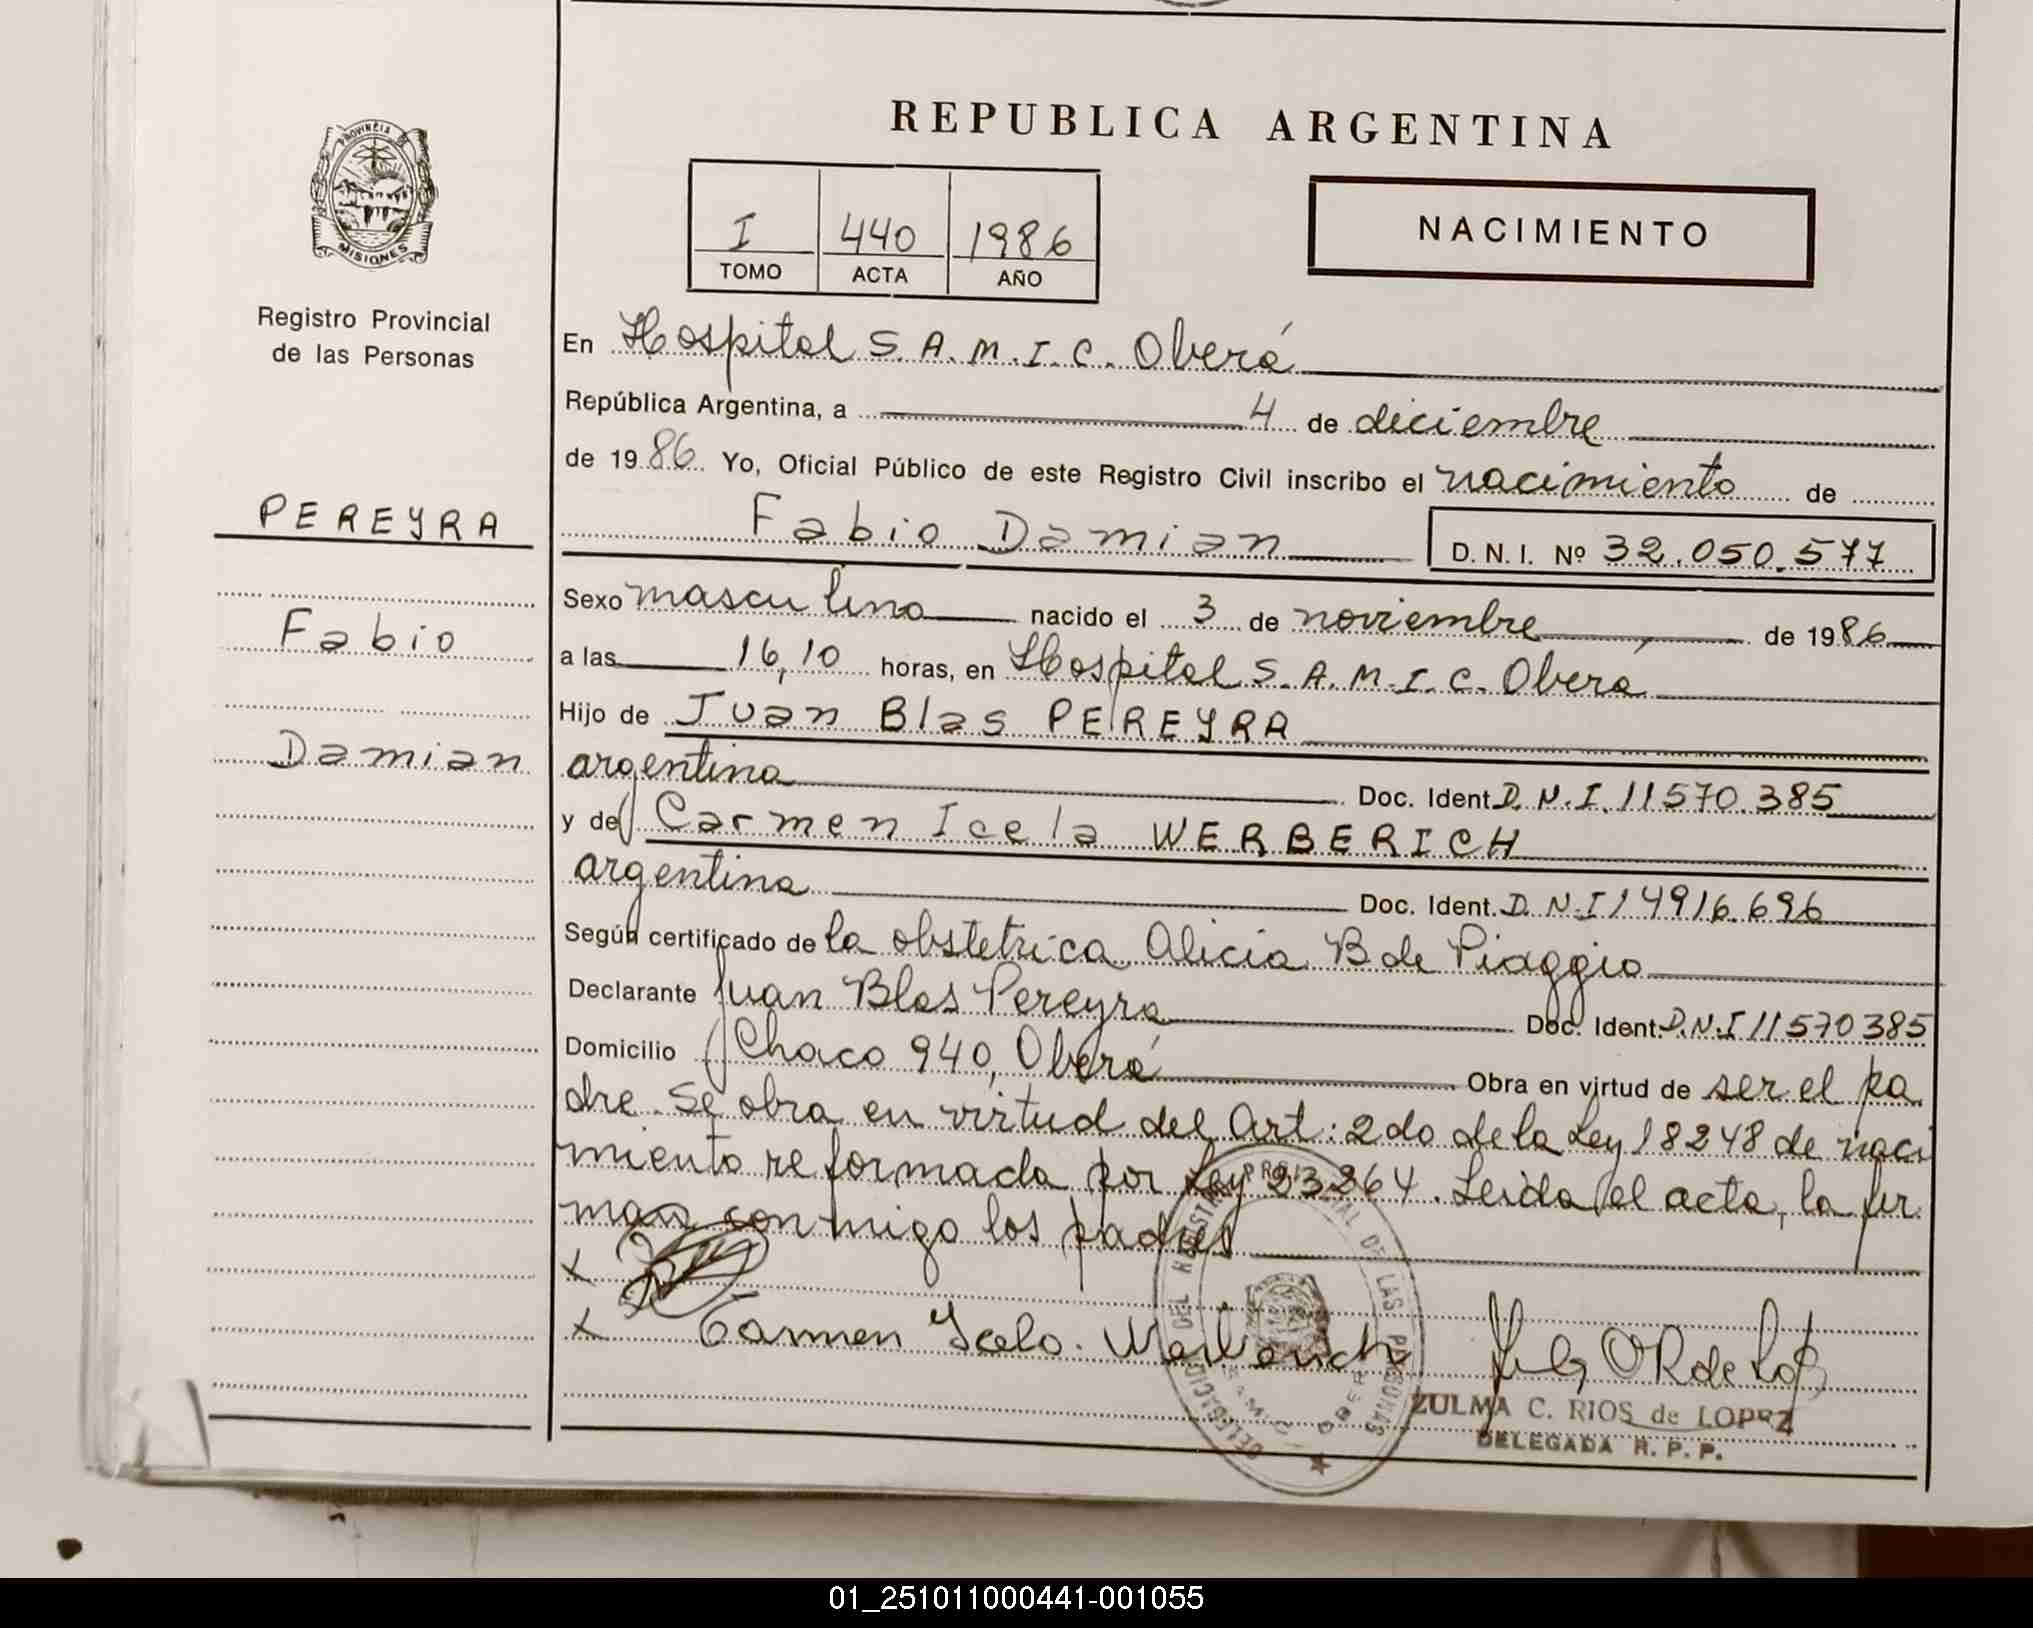 REPUBLICA ARGENTINA
I 440 1986
TOMO ACTA AÑO
NACIMIENTO
PROVINCIA DE
MISIONES
Registro Provincial
de las Personas
PEREYRA
Fabio
Damian
En Hospital S.A.M.I.C. Oberá
República Argentina, a 4 de diciembre
de 1986 Yo, Oficial Público de este Registro Civil inscribo el nacimiento de
Fabio Damian D.N.I. Nº 32.050.577
Sexo masculino nacido el 3 de noviembre, de 1986
a las 16,10 horas, en Hospital S.A.M.I.C. Oberá
Hijo de Juan Blas PEREYRA
argentina Doc. Ident. D.N.I. 11570.385
y de Carmen Icela WERBERICH
argentina Doc. Ident. D.N.I 14916.696
Según certificado de la obstetrica Alicia B de Piaggio
Declarante Juan Blas Pereyra Doc. Ident. D.N.I 11570385
Domicilio Chaco 940, Oberá Obra en virtud de ser el pa
dre. Se obra en virtud del Art: 2do de la Ley 18248 de naci
miento reformada por Ley 23264. Leida el acta, la fir
man conmigo los padres
x
x Carmen Icela.
DELEGACION DEL REGISTRO PROVINCIAL DE LAS PERSONAS
ZULMA C. RIOS de LOPEZ
DELEGADA R. P. P.
01_251011000441-001055